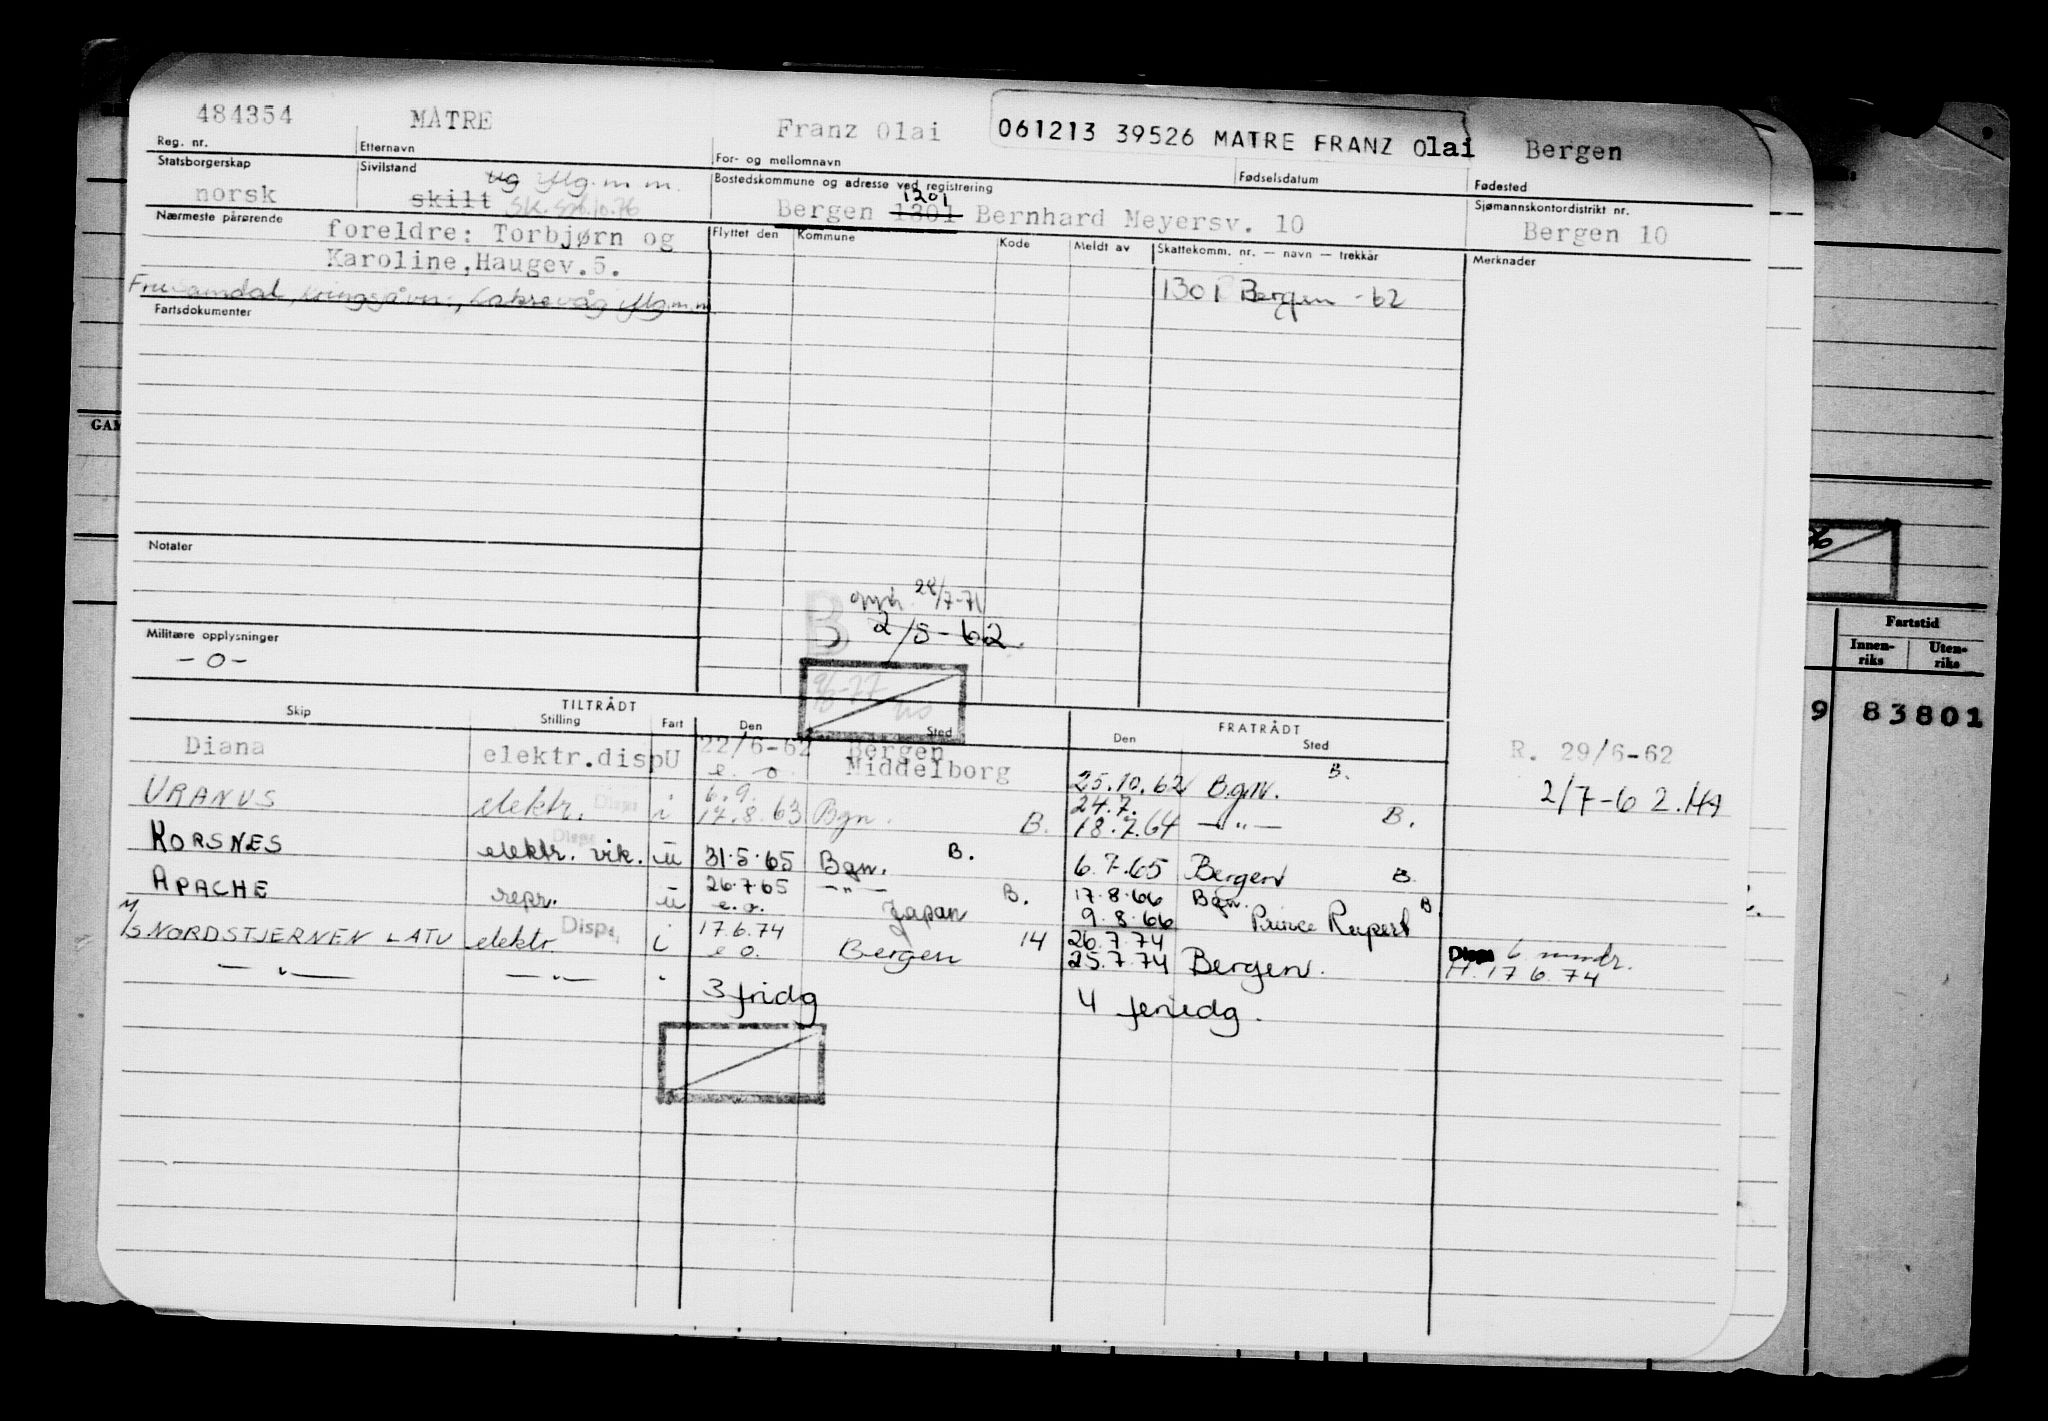 484354 MATRE Franz Olai 061213 39526 MATRE FRANZ Olai Bergen
Reg. nr. Etternavn For- og mellomnavn Fødselsdatum Fødested
Statsborgerskap Sivilstand Bostedskommune og adresse ved registrering Sjømannskontordistrikt nr.
ug Mg. m m.
norsk skilt 1301
Bergen 1301 Bernhard Meyersv. 10 Bergen 10
Nærmeste pårørende Flyttet den Kommune Kode Meldt av Skattekomm. nr. — navn — trekkår Merknader
foreldre: Torbjørn og
Karoline,Haugev.5.
1301 Bergen -62
Fartsdokumenter
GAM
Notater
28/7-71
B 2/5-62
Militære opplysninger
-0-
Fartstid
Innen-riks Uten-riks
9 83801
TILTRÅDT FRATRÅDT
Skip Stilling Fart Den Sted Den Sted
Diana elektr.disp U 22/6-62 Bergen R. 29/6-62
e. o. Middelborg 25.10.62 Bgn. B. 2/7-62.HA
URANUS elektr. Disp. i 6.9. 24.7.
17.8.63 Bgn. B. 18.7.64 -"- B.
KORSNES elektr. vik. Disp. u 31.5.65 Bgn. B. 6.7.65 Bergen B.
APACHE repr. u 26.7.65 -"- B. 17.8.66 Bgn. B
e.o. Japan 9.8.66 Prince Rupert
M/S NORDSTJERNEN LATU elektr. Disp. i 17.6.74 14 26.7.74 Disp. 6 mndr.
e o. Bergen 25.7.74 Bergen. 17 6.74
-"- -"- " 3 fridg 4 feriedg.